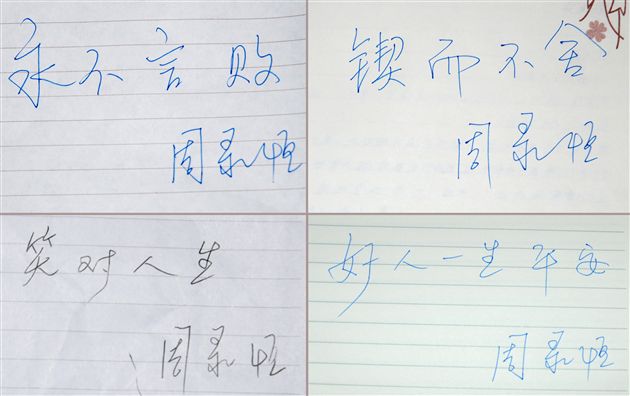 永不言败
周录恒
锲而不舍
周录恒
笑对人生
周录恒
好人一生平安
周录恒